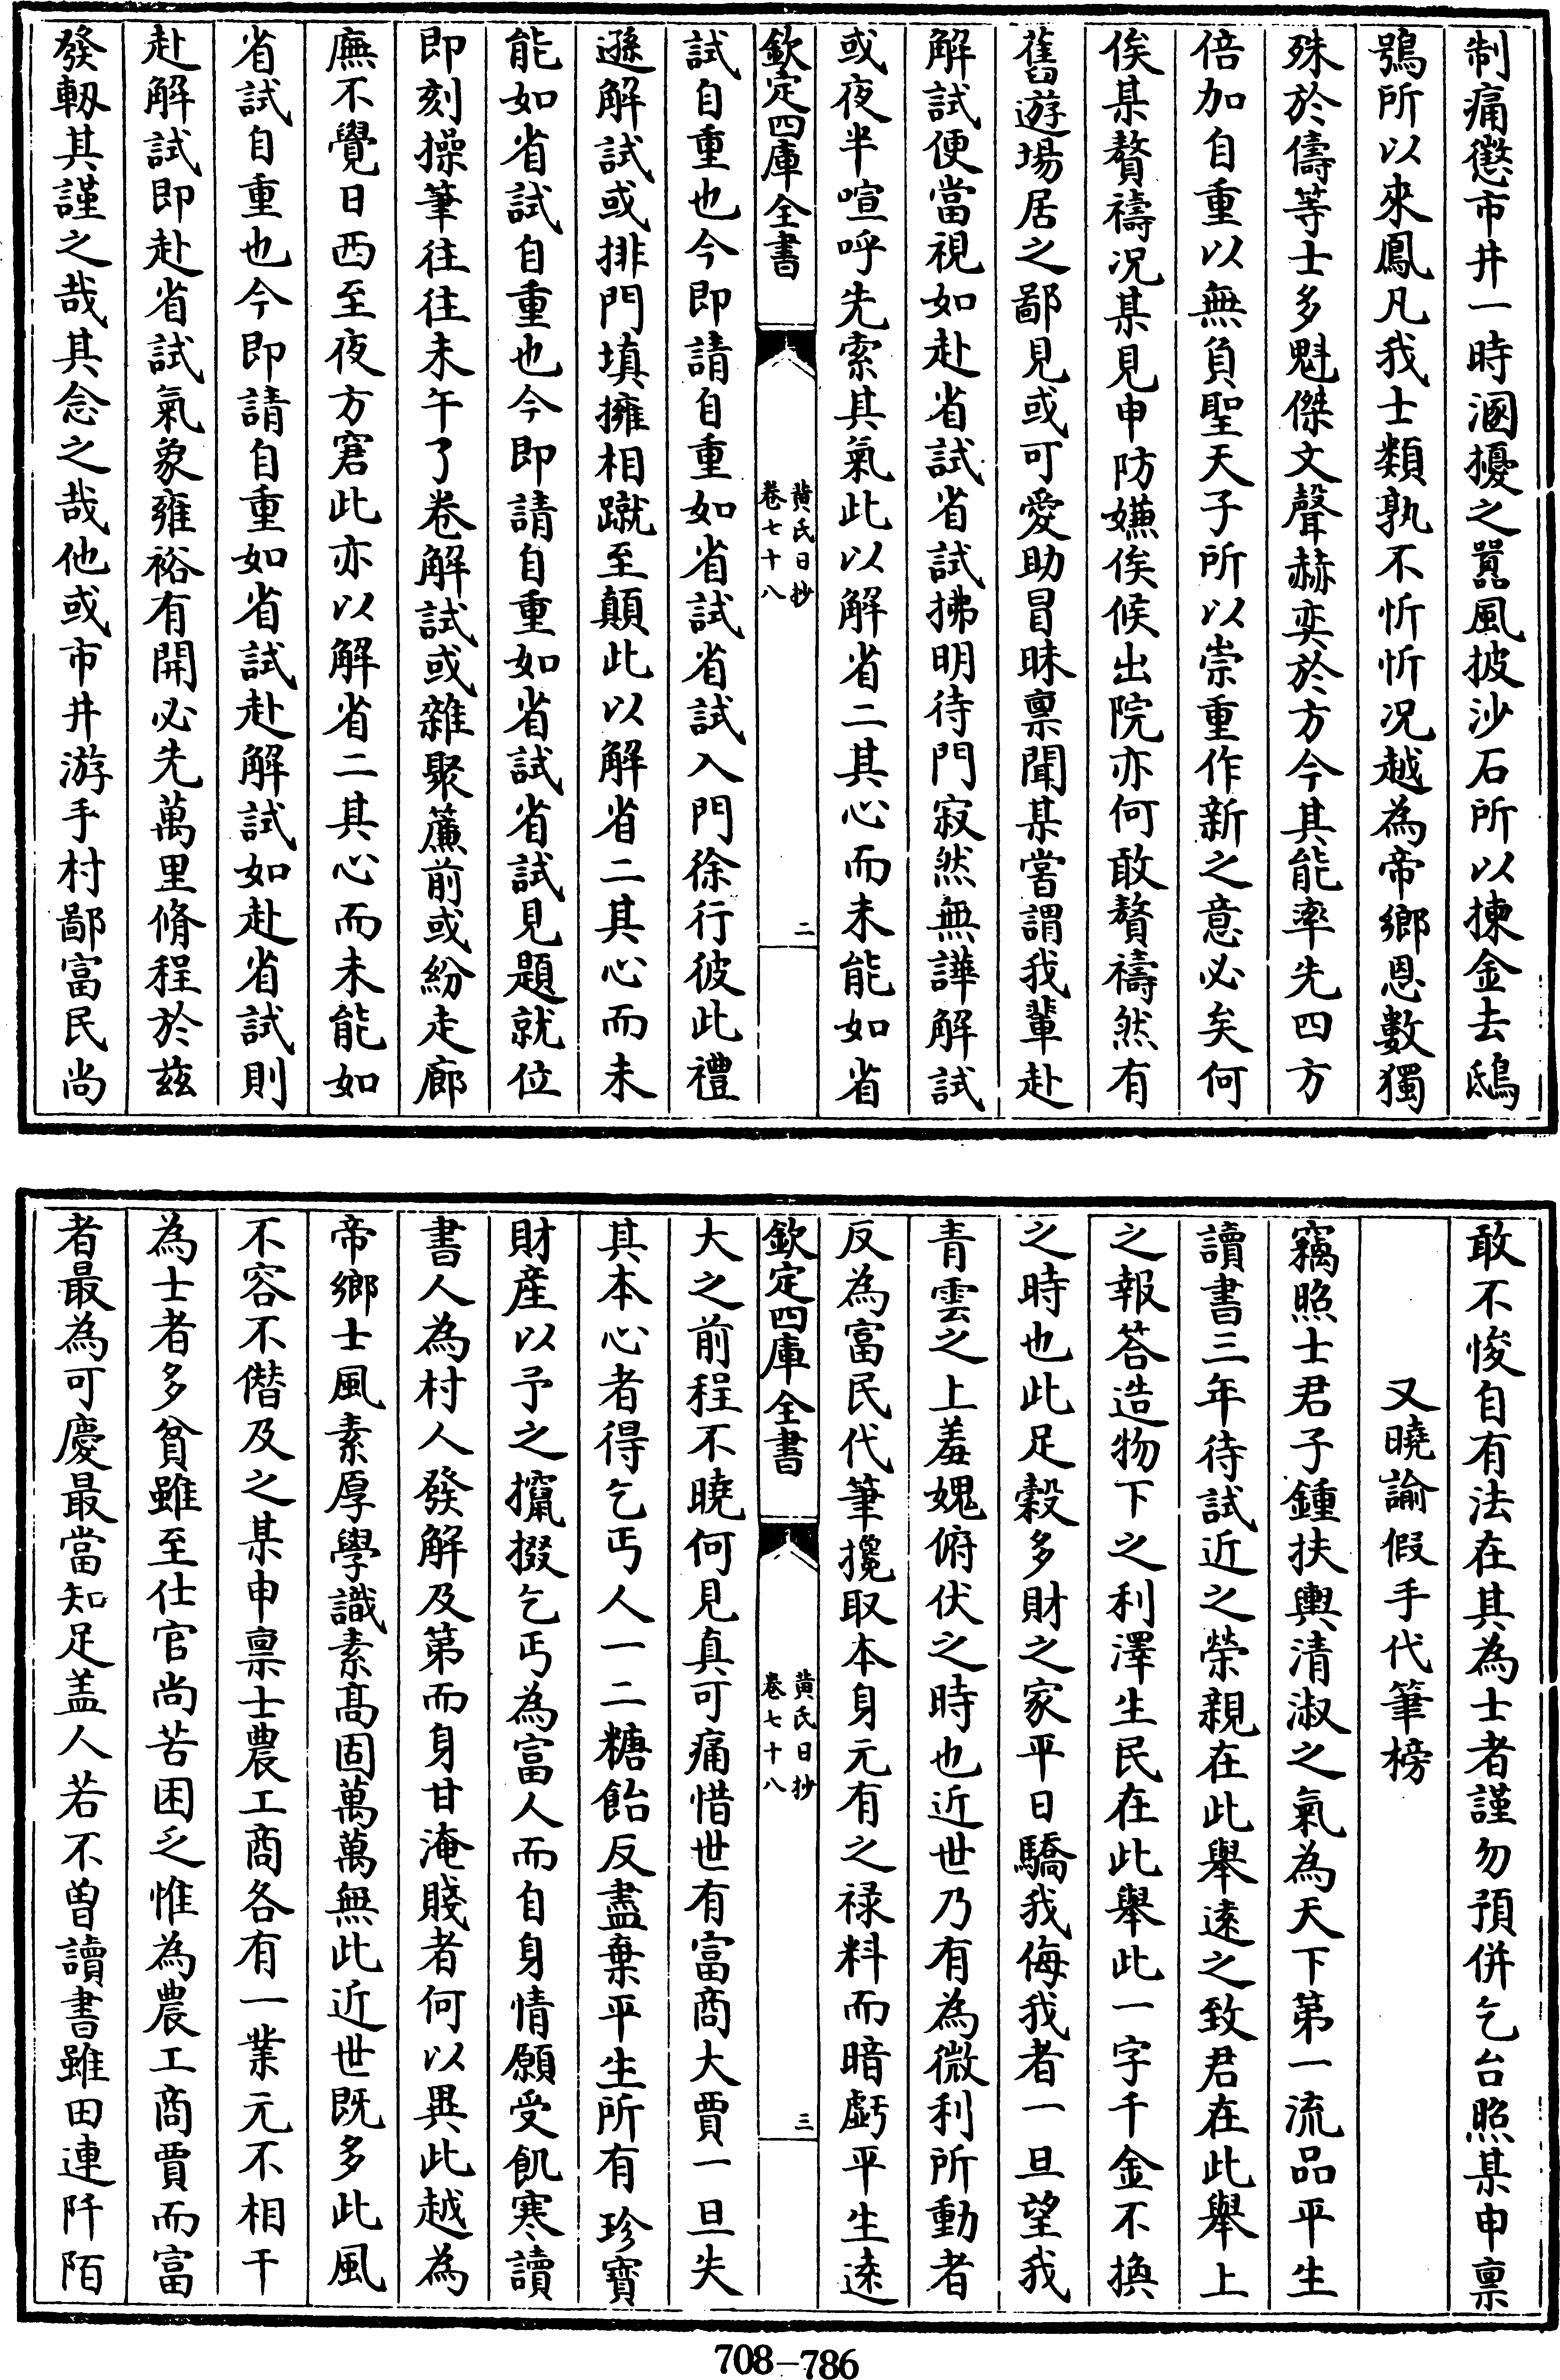 制痛懲市井一時溷擾之嚚風披沙石所以揀金去鴟
鴞所以來鳳凡我士類孰不忻忻况越為帝鄉恩數獨
殊於儔等士多魁傑文聲赫奕於方今其能率先四方
倍加自重以無負聖天子所以崇重作新之意必矣何
俟某贅禱况某見申防嫌俟候出院亦何敢贅禱然有
舊遊場居之鄙見或可愛助冒昧禀聞某嘗謂我輩赴
解試便當視如赴省試省試拂明待門寂然無譁解試
或夜半喧呼先索其氣此以解省二其心而未能如省
欽定四庫全書
黄氏日抄
卷七十八
二
試自重也今即請自重如省試省試入門徐行彼此禮
遜解試或排門填擁相蹴至顛此以解省二其心而未
能如省試自重也今即請自重如省試省試見題就位
即刻操筆往往未午了卷解試或雜聚簾前或紛走廊
廡不覺日西至夜方窘此亦以解省二其心而未能如
省試自重也今即請自重如省試赴解試如赴省試則
赴解試即赴省試氣象雍裕有開必先萬里脩程於兹
發軔其謹之哉其念之哉他或市井游手村鄙富民尚
敢不悛自有法在其為士者謹勿預併乞台照某申禀
又曉諭假手代筆榜
竊照士君子鍾扶輿清淑之氣為天下第一流品平生
讀書三年待試近之榮親在此舉逺之致君在此舉上
之報荅造物下之利澤生民在此舉此一字千金不換
之時也此足榖多財之家平日驕我侮我者一旦望我
青雲之上羞媿俯伏之時也近世乃有為微利所動者
反為富民代筆攙取本身元有之禄料而暗虧平生逺
欽定四庫全書
黄氏日抄
卷七十八
三
大之前程不曉何見真可痛惜世有富商大賈一旦失
其本心者得乞丐人一二糖飴反盡棄平生所有珍寳
財産以予之攛掇乞丐為富人而自身情願受飢寒讀
書人為村人發解及第而身甘淹賤者何以異此越為
帝鄉士風素厚學識素髙固萬萬無此近世既多此風
不容不僣及之某申禀士農工商各有一業元不相干
為士者多貧雖至仕官尚苦困乏惟為農工商賈而富
者最為可慶最當知足盖人若不曽讀書雖田連阡陌
708-786